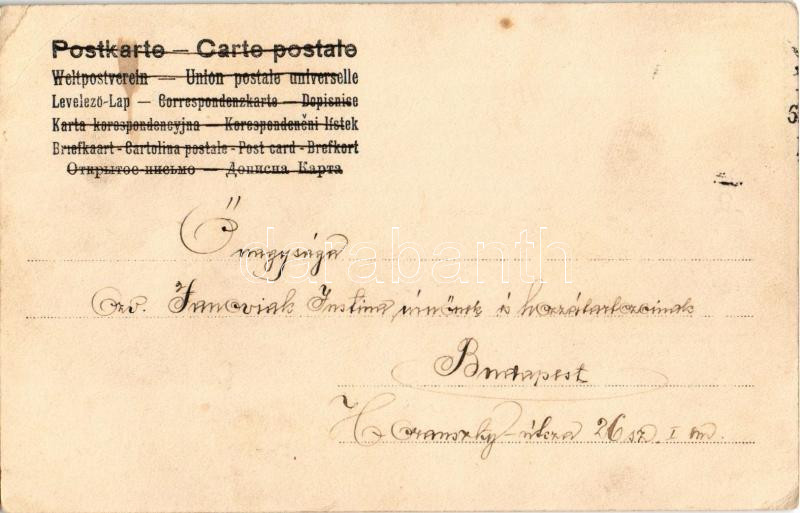 Postkarte – Carte postale
Weltpostverein — Union postale universelle
Levelező-Lap — Correspondenzkarte — Dopisnice
Karta korespondencyjna — Korespondenční lístek
Briefkaart - Cartolina postale - Post card - Brefkort
Открытое письмо — Дописна Карта
Ő nagysága
darabanth
Özv. Janoviak Justina úrnőnek és hozzátartozóinak
Budapest
Horanszky-utcza 26 sz. I em.